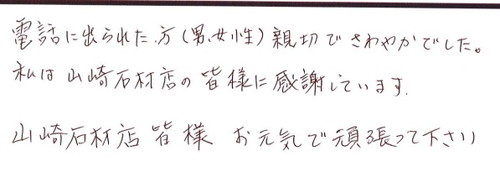 電話に出られた方(男、女性)親切でさわやかでした。
私は山崎石材店の皆様に感謝しています.
山崎石材店皆様 お元気で頑張って下さい